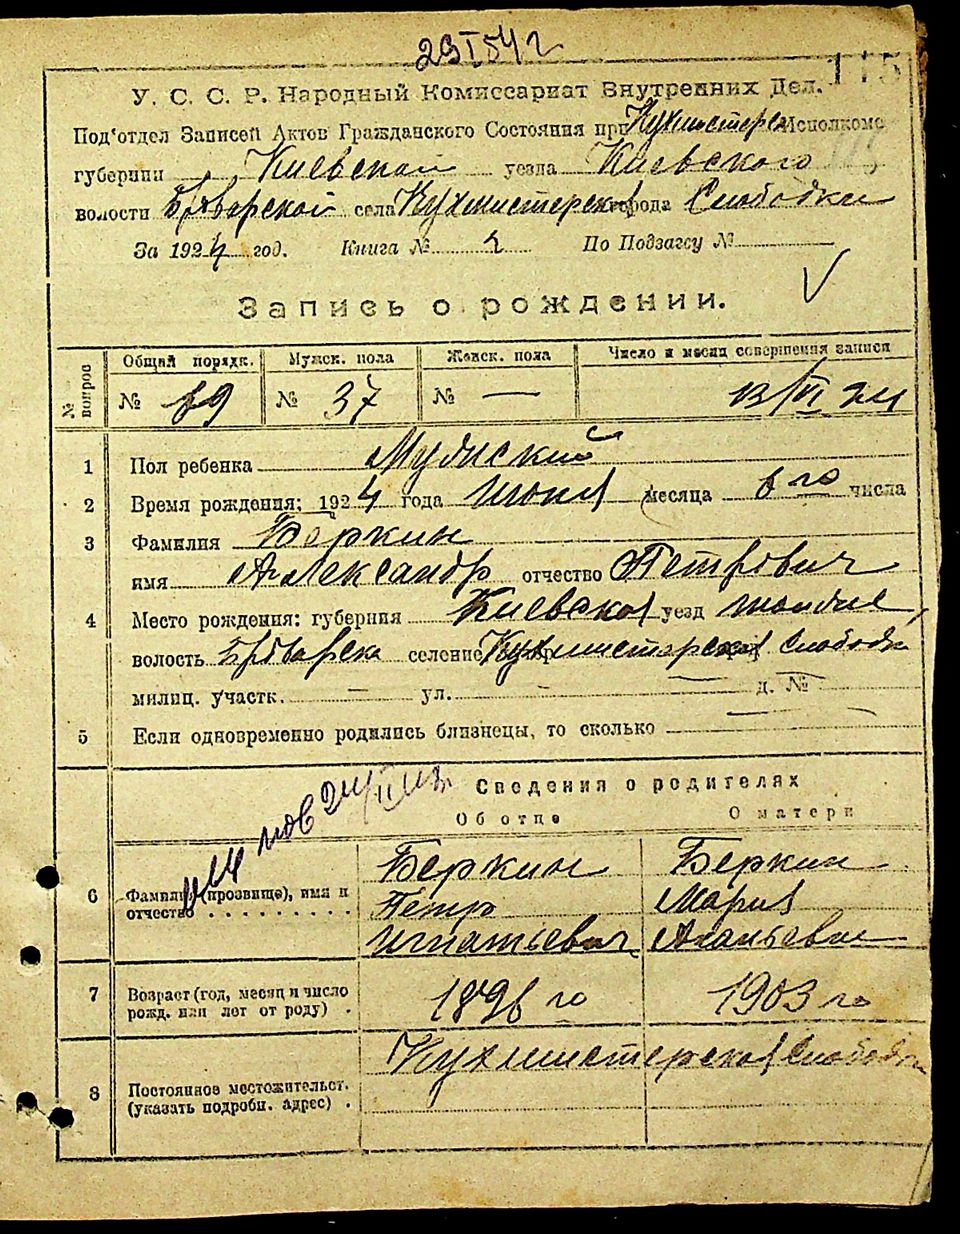 29 I 54 г
115
У. С. С. Р. Народный Комиссариат Внутренних Дел.
Под'отдел Записей Актов Гражданского Состояния при Кухмистерс Исполкоме
губернии Киевской уезда Киевского
волости Броварской села Кухмистерской города Слободки
За 1924 год. Книга № 2 По Подзагсу №
Запись о рождении.
№ вопрос Общий порядк. Мужск. пола Женск. пола Число и месяц совершения записи
№ 89 № 37 № — 13/VI 24
1 Пол ребенка Мужской
2 Время рождения: 1924 года июня месяца 8 го числа
3 Фамилия Беркин
имя Александр отчество Петрович
4 Место рождения: губерния Киевская уезд
волость Броварска селение Кухмистерская Слободка
милиц. участк. — ул. — д. № —
5 Если одновременно родились близнецы, то сколько —
Сведения о родителях
Об отце О матери
6 Фамилия (прозвище), имя и отчество . . . . . . . . . .
Беркин Беркин
Петр Мария
Игнатьевич
7 Возраст (год, месяц и число рожд. или лет от роду) .
1898 го 1903 го
8 Постоянное местожительст. (указать подробн. адрес) .
Кухмистерская Слободка